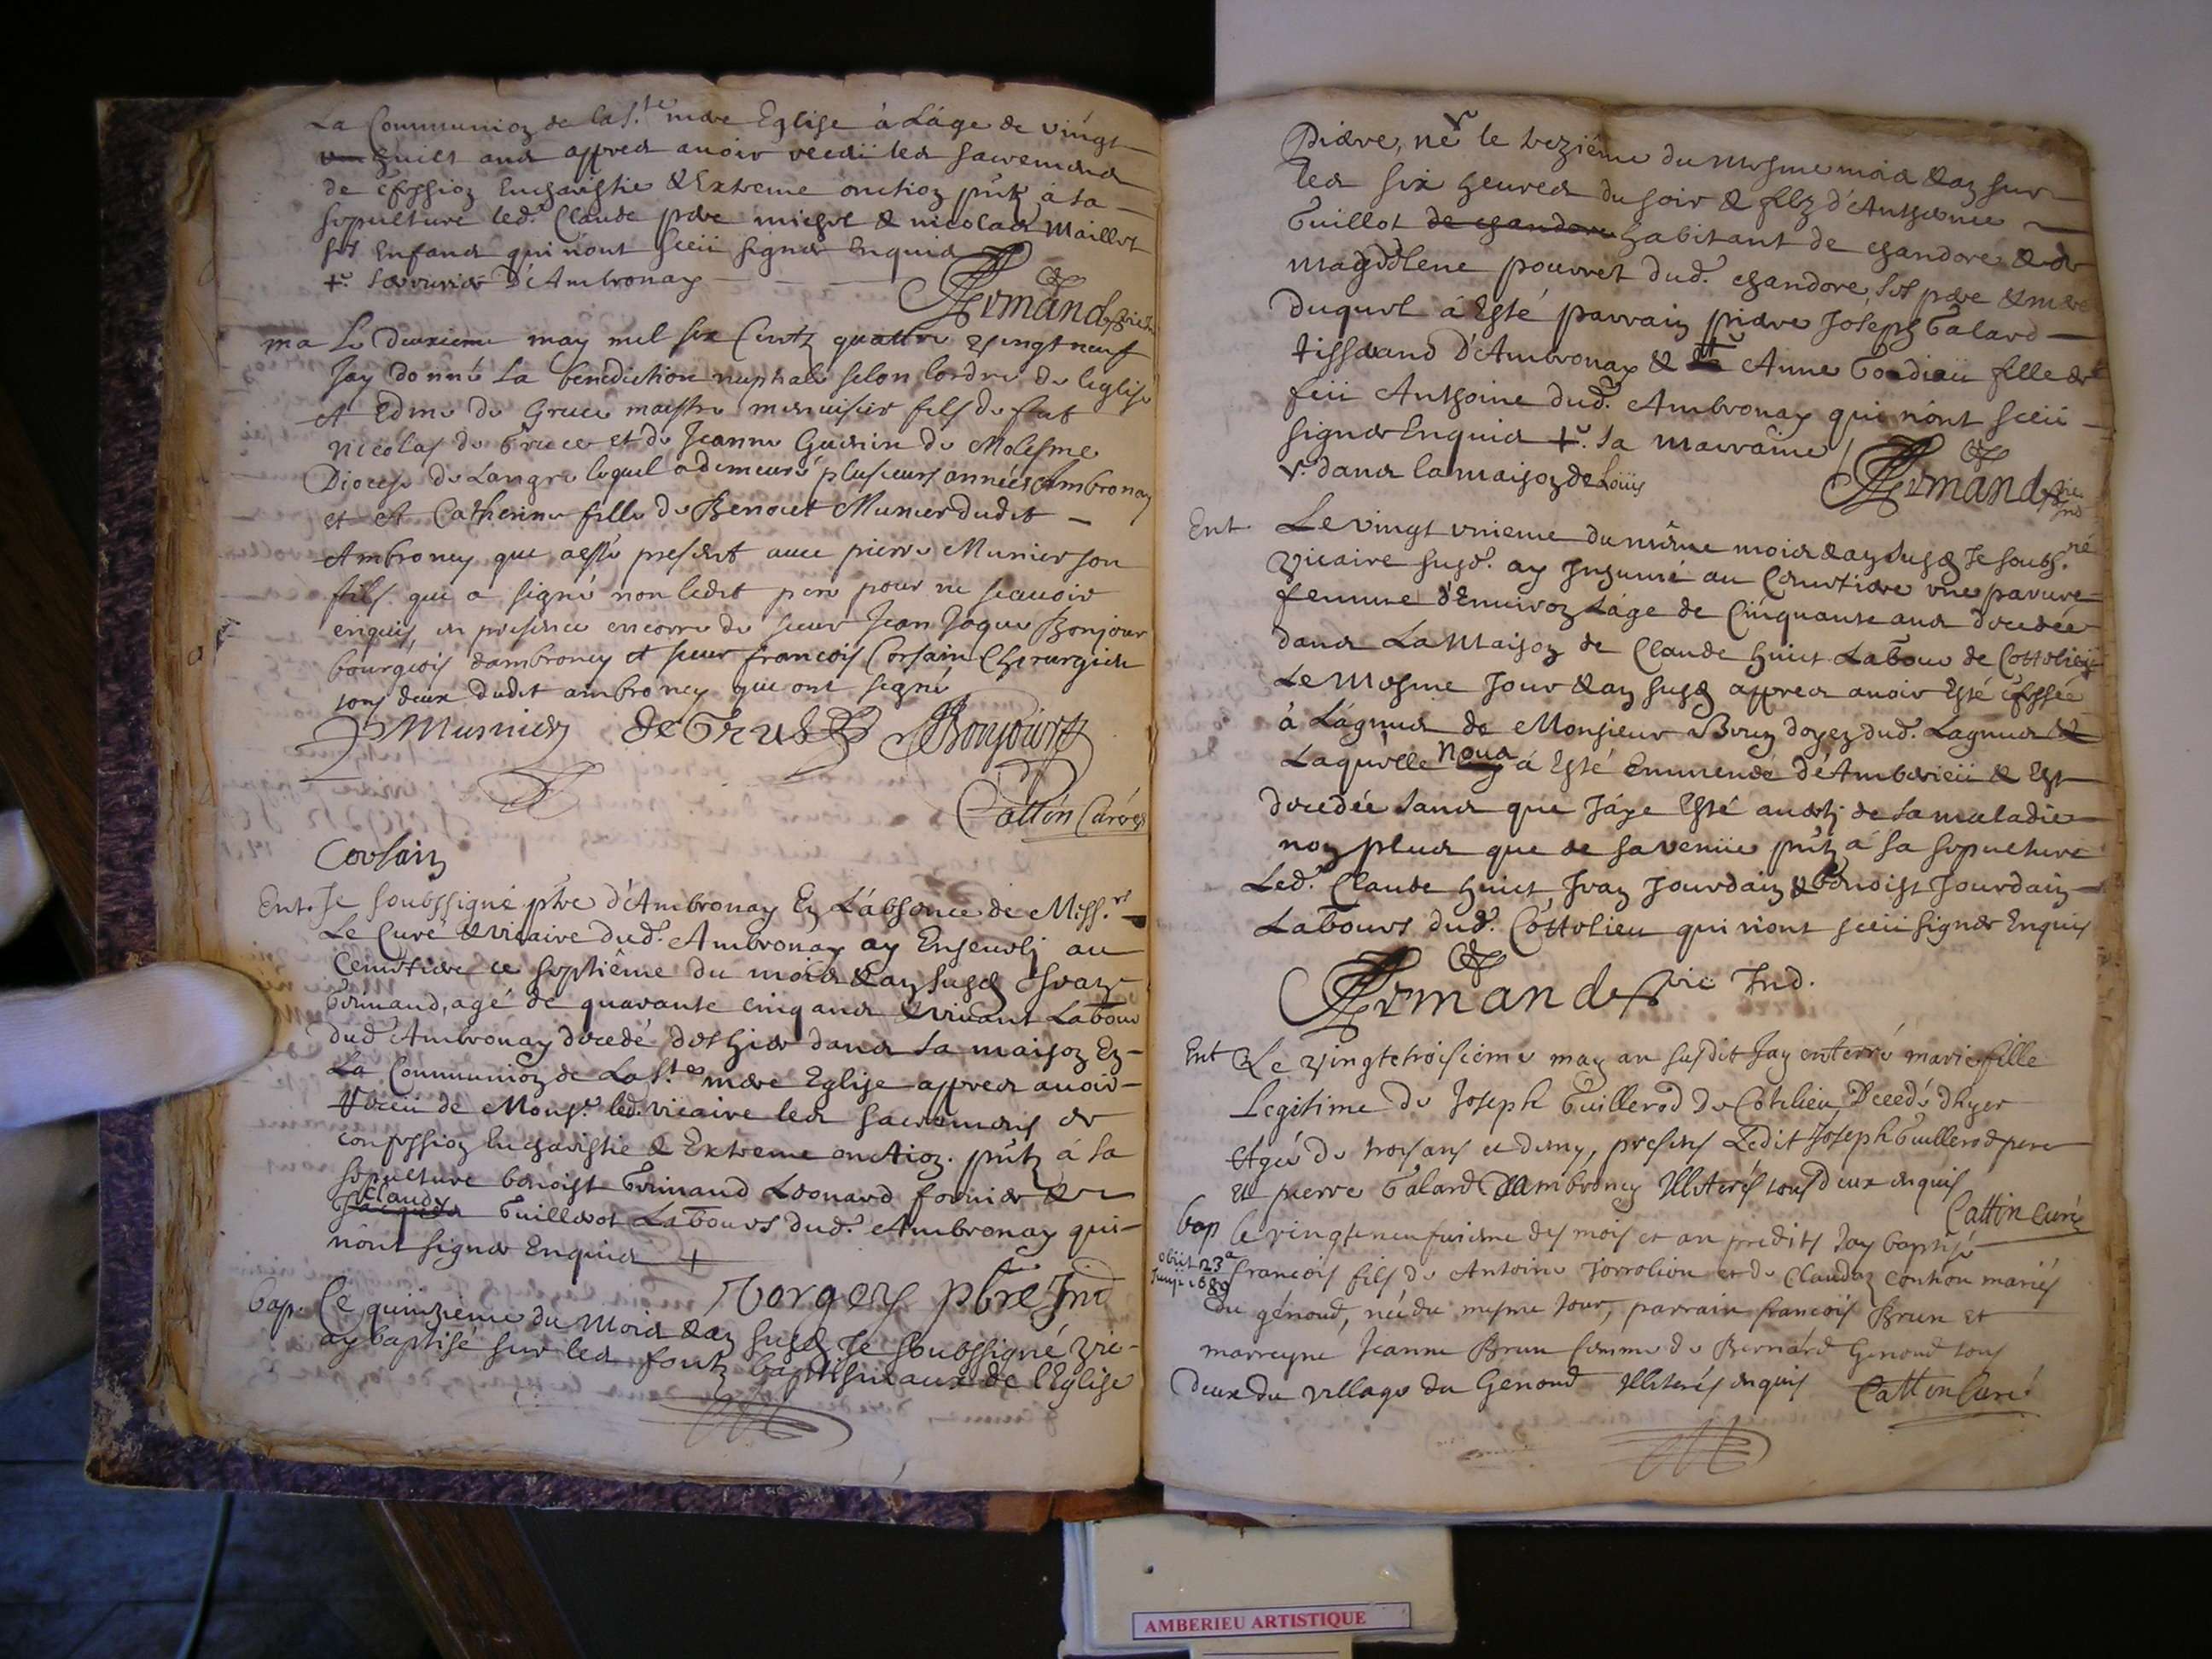 La Communion de la S.te mere Eglise à Láge de vingt
huict ans appres auoir receü les sacremens
de c~fession Eucharistie & Extreme onction pñtz à sa
sepulture led. Claude pere michel & nicolas Maillet
ses Enfans qui n'ont sceü signer Enquis
+. D'Ambronay
Armand vic
ma Le deuxieme may mil six Centz quattre vingt neuf
Jay donné La benediction nuptiale selon lordre de leglise
A Edme de Gruce maistre menuisier fils de feut
nicolas de Gruce et de Jeanne Guenin de Molesme
Diocese de Langre lequel a demeuré plusieurs années Ambronay
et A Catherine fille de Benoict Munier dudit
Ambronay que a esté present auec pierre Munier son
fils qui a signé non ledit pere pour ne scauoir
enquis en presence encorre de sieur Jean Jaque Bonjour
bourgeois dambronay et sieur francois Corsain Chirurgien
tous deux dudit ambronay qui ont signé
P Munier de Gruse Bonjour
Cattin Curé
Corsain
Ent. Je soubssigné pbre d'Ambronay En L'absence de Miss.rs
Le Curé & vicaire dud. Ambronay ay Enseueli au
Cemetiere ce septiême du mois & an susd
Grinand, agé de quarante cinq ans & viuant Labour
dud Ambronay decedé des hier dans sa maison En
La Communion de La S.te mere Eglise appres auoir
receu de Mons.r led. vicaire les sacremens de
confession Eucharistie & Extreme onction. pñtz à sa
sepulture benoist Grinand Leonard fornier &
Claude
Jacques Guillerot Labours dud. Ambronay qui
n'ont signer Enquis +
Vorgey pbre Ind
bap. Ce quinzieme du Mois & an susd Je soubssigné vic
ay baptisé sur les fontz baptismaux de l'Eglise
Pierre, né v le trezième du mesme mois & an sur
les six heures du soir & filz d'Anthoine
Guillot de chandore habitant de chandore & de
Magdelene pourret dud. chandore, ses pere & mere
Duquel à Esté parrain pierre Joseph Galard
tisserand D'Ambronay & Anne Gordieü fille de
feü Anthoine dud. Ambronay qui n'ont sceü
signer Enquis +. La marraine
v. dans la maison de Loüis
Armand vic Ind
Ent. Le vingt vnieme du même mois & an susd Je soubs.né
vicaire susd. ay Inhumé au Cemetiere vne pauure
femme d'Enuiron Láge de Cinquante ans decedée
dans La Maison de Claude huict Labour de Cottelieu
Le Mesme Jour & an susd appres auoir Esté c~fessée
à Lagneu de Monsieur Brun doyen dud. Lagneu &
Laquelle Nous á Esté Emmenée d'Amberieü & Est
decedée sans que J'aye Esté auerty de sa maladie
non plus que de sa venüe pñtz à sa sepulture
Led. Claude huict Jean Jourdain & benoist Jourdain
Labours dud. Cottelieu qui n'ont sceü signer Enquis
Armand vic Ind.
Ent Le vingtetroisieme may an susdit Jay enterré marie fille
Legitime de Joseph Guillerod de Cotelieu Decedé dhyer
Agée de trois ans et demy, presens Ledit Joseph Guillerod pere
Et pierre Galard D'Ambronay Illiterés tous deux enquis
Cattin curé
bap Le vingteneufuieme des mois et an predits Jay baptisé
obiit 23a
Junii 1689
francois fils de Antoine Jorrolion et de Claudaz conthon mariés
du génoud, née du mesme jour, parrain francois Brun et
marreyne Jeanne Brun femme de Bernard Genoud tous
deux du village du Genoud Illiterés enquis Cattin Curé
AMBERIEU ARTISTIQUE